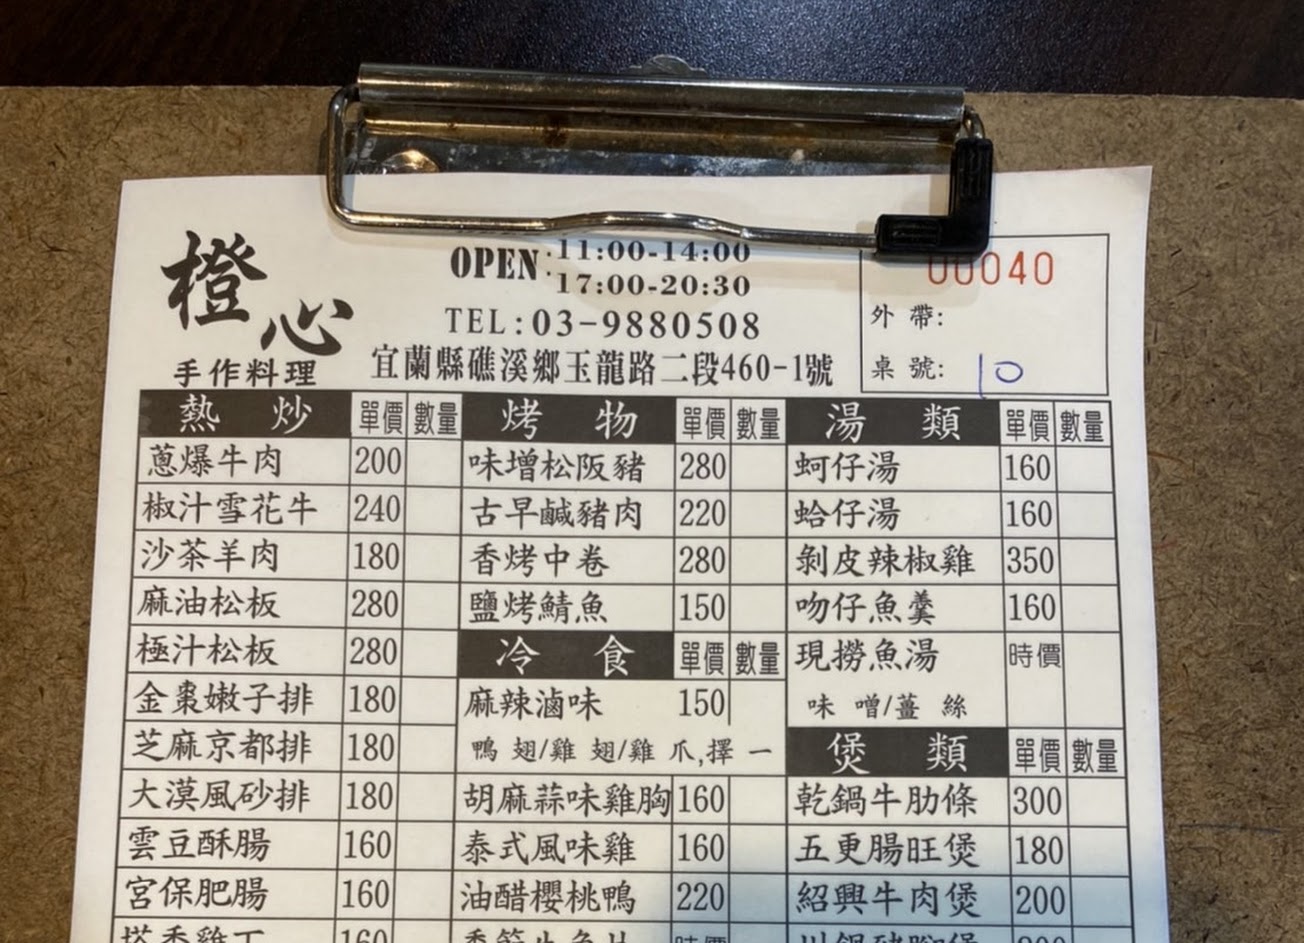 橙心
手作料理
OPEN: 11:00-14:00
17:00-20:30
TEL:03-9880508
宜蘭縣礁溪鄉玉龍路二段460-1號
00040
外帶:
桌號: 10
熱炒 單價 數量
蔥爆牛肉 200
椒汁雪花牛 240
沙茶羊肉 180
麻油松板 280
極汁松板 280
金棗嫩子排 180
芝麻京都排 180
大漠風砂排 180
雲豆酥腸 160
宮保肥腸 160
塔香雞丁 160
烤物 單價 數量
味增松阪豬 280
古早鹹豬肉 220
香烤中卷 280
鹽烤鯖魚 150
冷食 單價 數量
麻辣滷味 150
鴨翅/雞翅/雞爪,擇一
胡麻蒜味雞胸 160
泰式風味雞 160
油醋櫻桃鴨 220
季節生魚片 時價
湯類 單價 數量
蚵仔湯 160
蛤仔湯 160
剝皮辣椒雞 350
吻仔魚羹 160
現撈魚湯 時價
味噌/薑絲
煲類 單價 數量
乾鍋牛肋條 300
五更腸旺煲 180
紹興牛肉煲 200